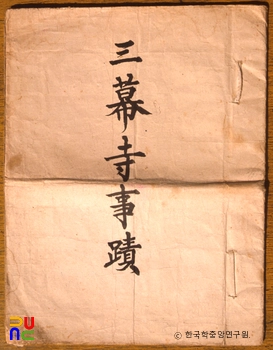 三幕寺事蹟
ⓒ 한국학중앙연구원.